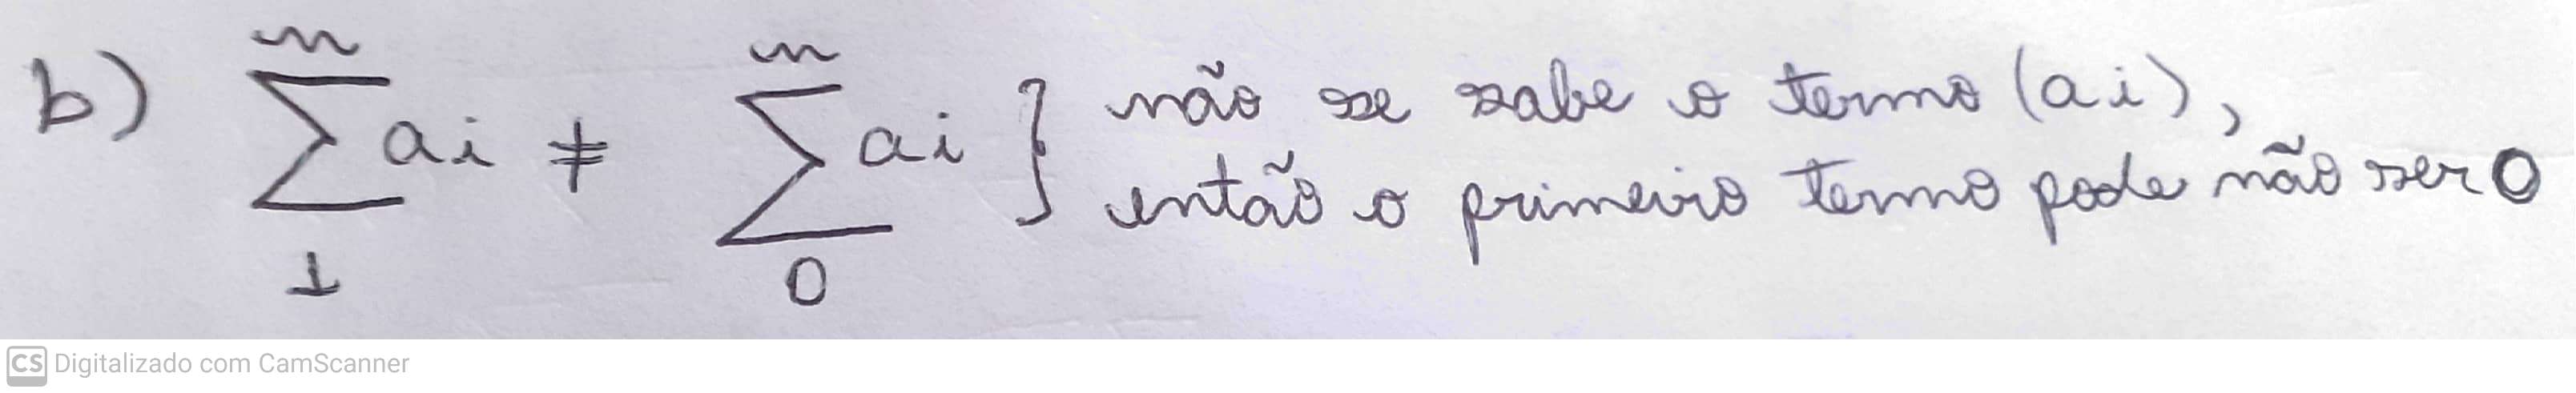 b) $\sum_{1}^{n} a_i \neq \sum_{0}^{n} a_i$ } não se sabe o termo (ai),
então o primeiro termo pode não ser 0
CS Digitalizado com CamScanner